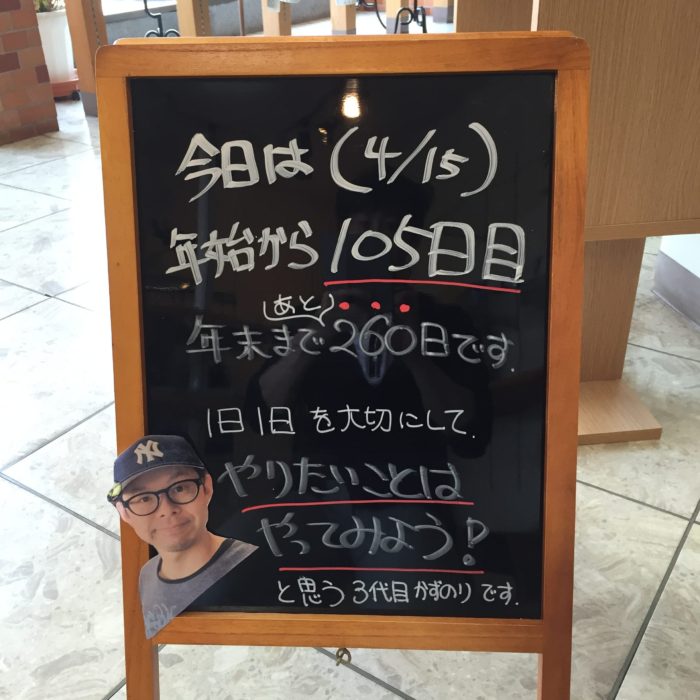 今日は(4/15)
年始から105日目
あと
年末まで260日です.
1日1日を大切にして.
やりたいことは
やってみよう!
と思う3代目かずのりです.
NY